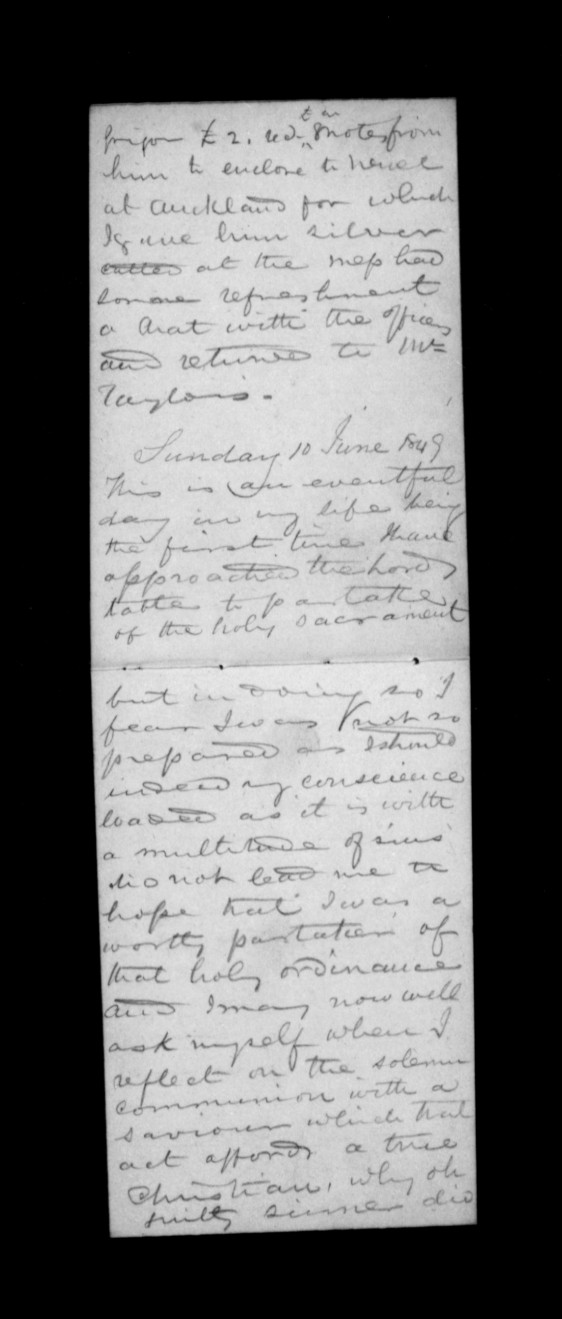 £ 2. notes from
him to enclose to
at Auckland for which
I gave him silver
called at the mess had
some refreshment
a chat with the officers
and returned to Mr
Taylors.
Sunday 10 June 1849
This is an eventful
day in my life being
the first time I have
approached the Lords
table to partake
of the holy sacrament
but in doing so I
fear I was not so
prepared as I should
indeed my conscience
loaded as it is with
a multitude of sins
did not lead me to
hope that I was a
worthy partaker of
that holy ordinance
and I may now well
ask myself when I
reflect on the solemn
communion with a
saviour which that
act affords a true
Christian, why oh
guilty sinner did